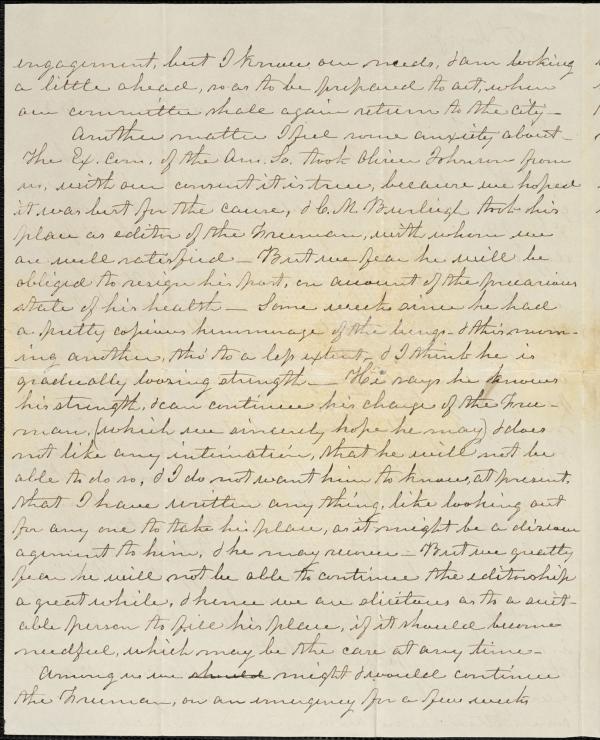 engagement, but I know our needs, & am looking
a little ahead, so as to be prepared to act, when
our committee shall again return to the city—
Another matter I feel some anxiety about—
The Ex. Com. of the Am. So. took Oliver Johnson from
us, with our consent it is true, because we hoped
it was best for the cause, & C. M. Burleigh took his
place as editor of the Freeman, with whom we
are well satisfied— But we fear he will be
obliged to resign his post, on account of the precarious
state of his health— Some weeks since he had
a pretty copious hemmorage of the lungs— & this morn-
ing another, tho' to a less extent, & I think he is
gradually loosing strength— He says he knows
his strength, & can continue his charge of the Free-
man, (which we sincerely hope he may) & does
not like any intimation, that he will not be
able to do so, & I do not want him to know, at present,
that I have written any thing, like looking out
for any one to take his place, as it might be a discour
agement to him, & he may recover— But we greatly
fear he will not be able to continue the editorship
a great while, & hence we are solicitous as to a suit-
able person to fill his place, if it should become
needful, which may be the case at any time—
Among us we should might & would continue
the Freeman, on an emergency for a few weeks